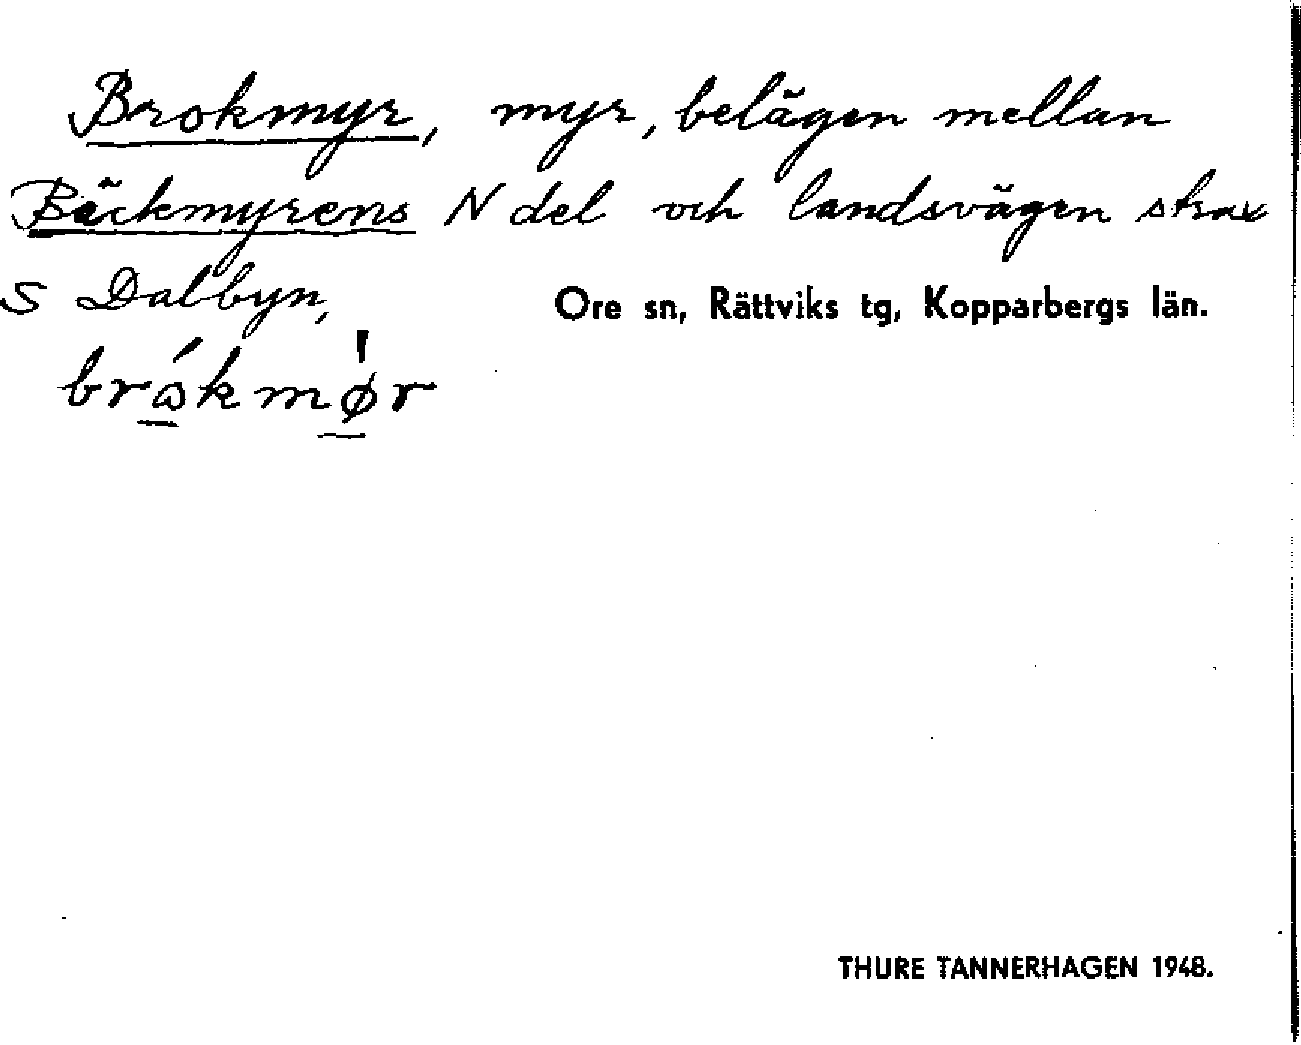 Brokmyr, myr, belägen mellan
Bäckmyrens N del och landsvägen strax
S Dalbyn,
Ore sn, Rättviks tg, Kopparbergs län.
brώ̲km ø̲̍r
THURE TANNERHAGEN 1948.